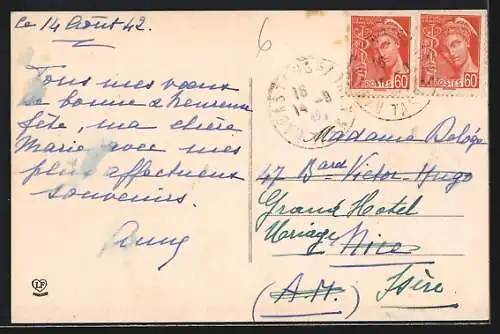 Le 14 Août 42.
Tous mes voeux
de bonne & heureuse
fête, ma chère
Marie avec mes
plus affectueux
souvenirs.
6
POSTES 60f
POSTES 60f
16
14 -8
Madame
47 Bard Victor Hugo
Grand Hotel
Uriage Nice
(A.M.) Isère